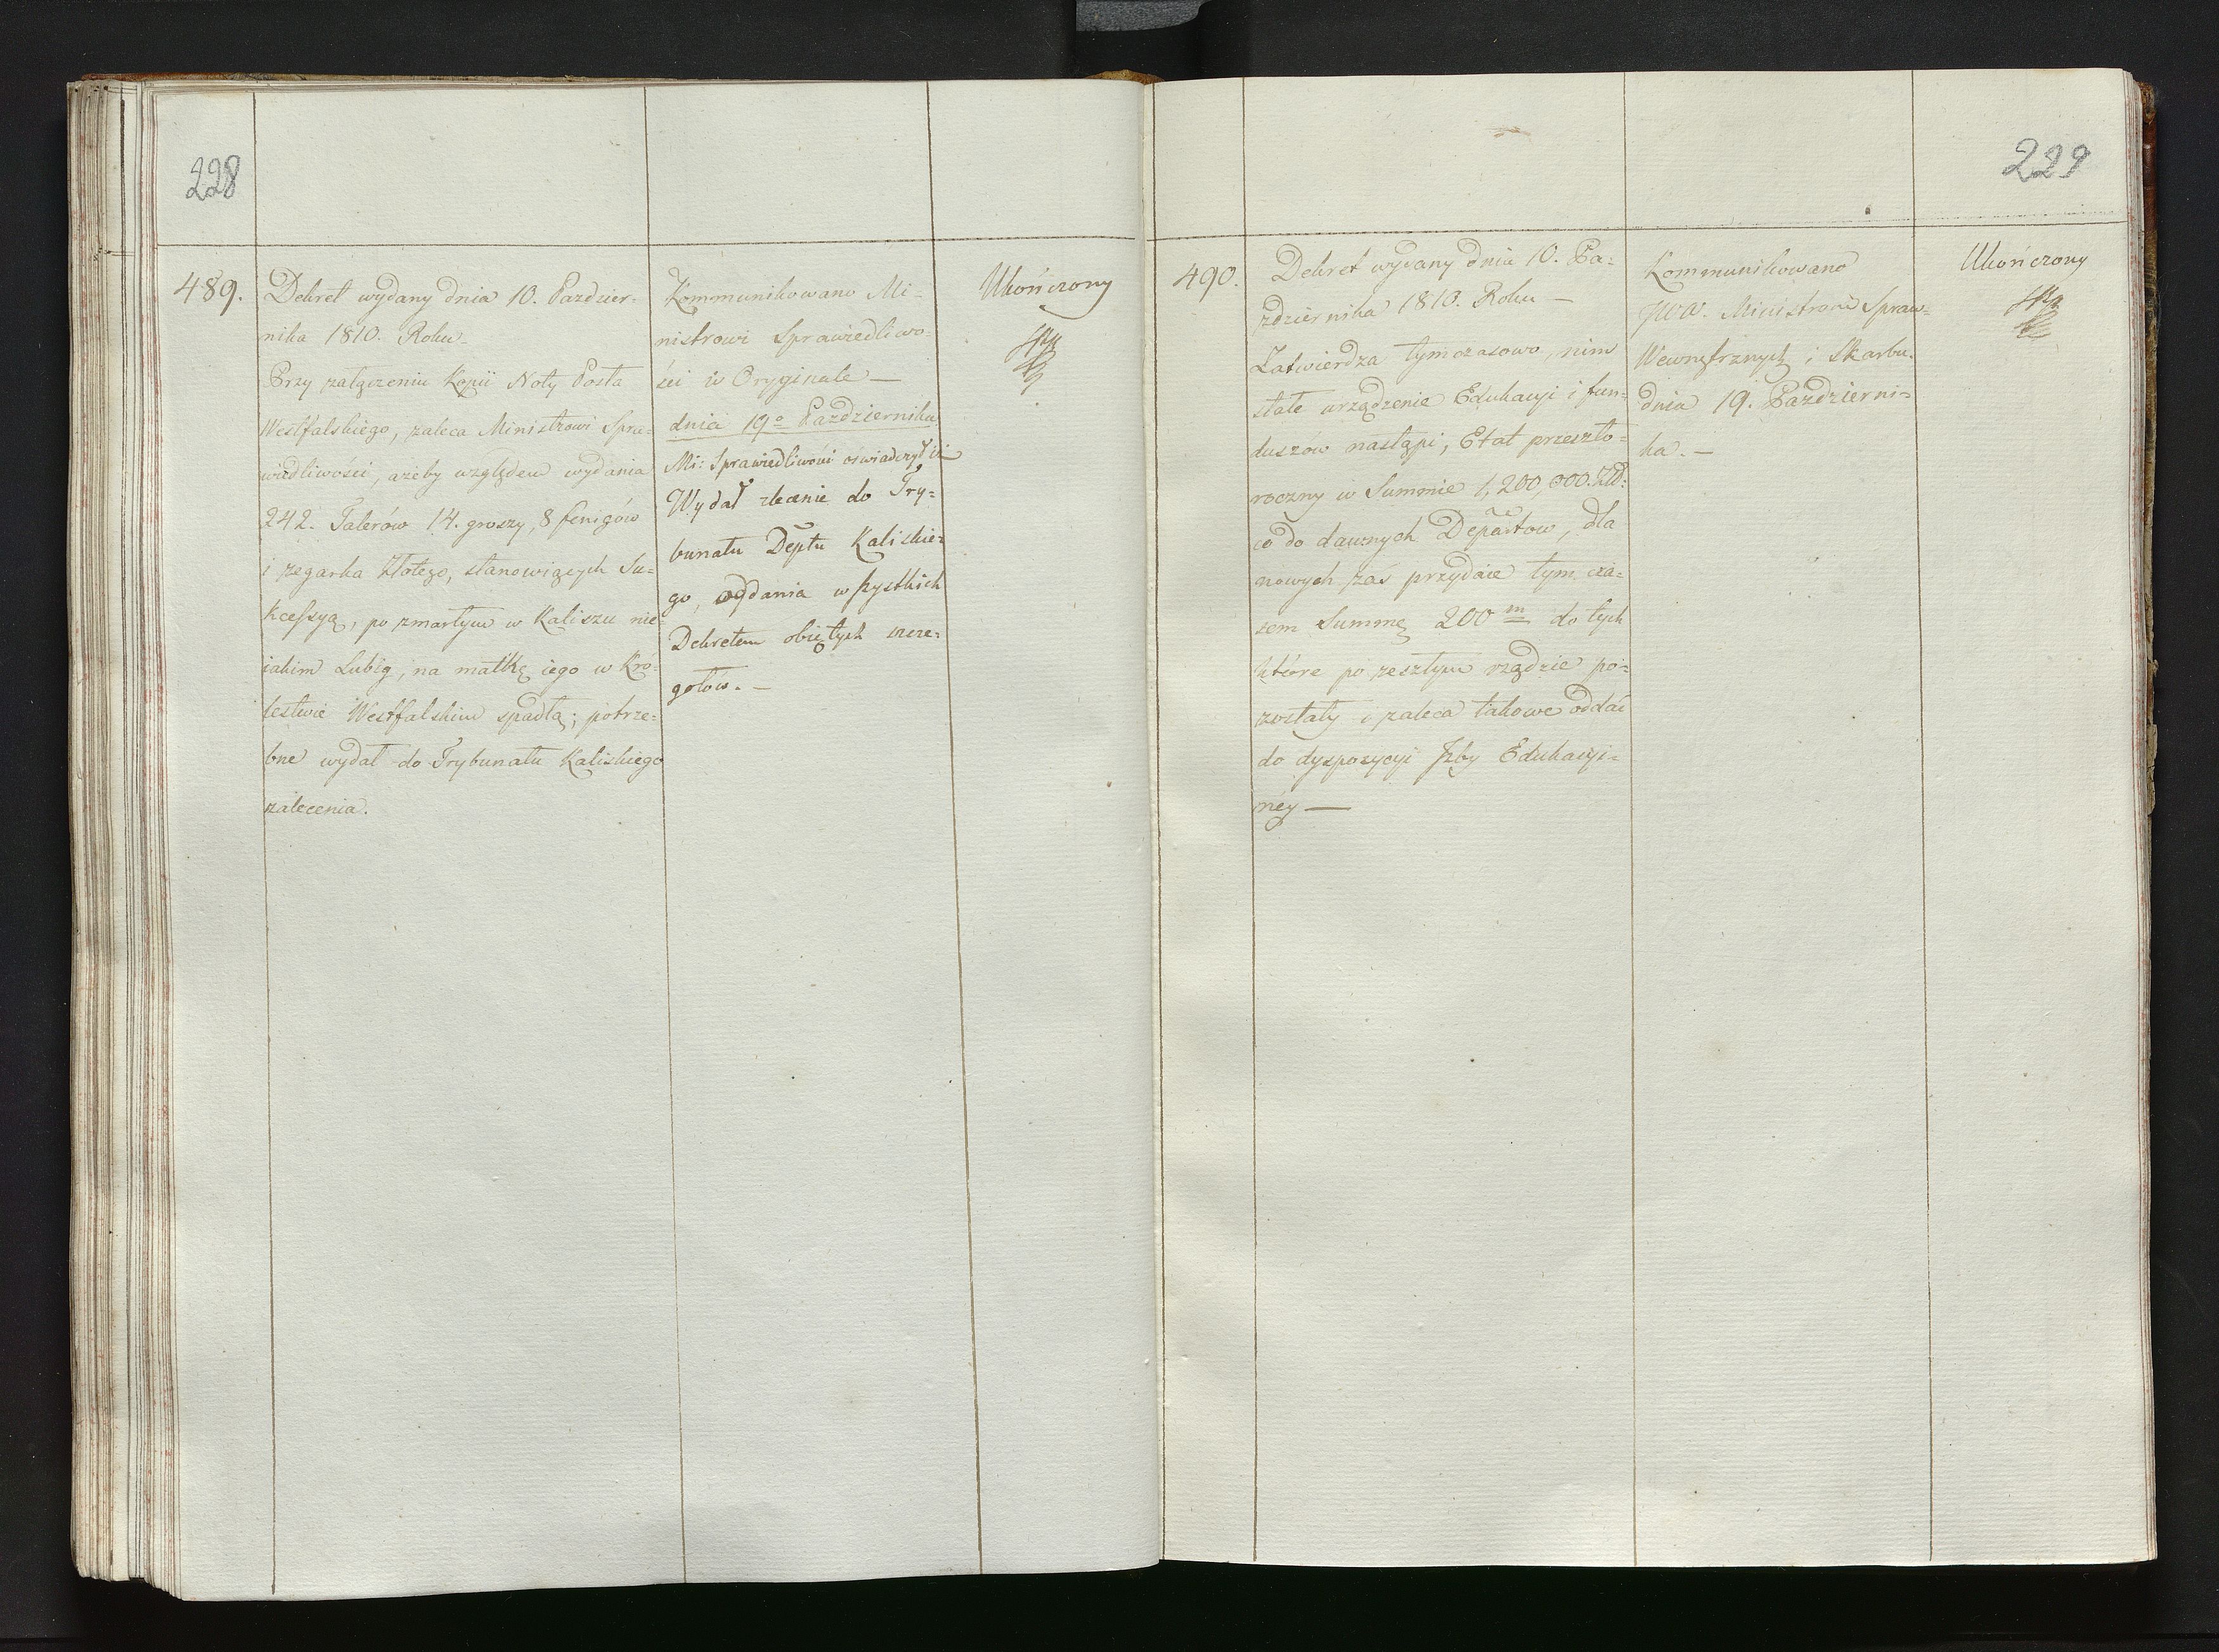 228
489.
Dekret wydany dnia 10. Paździer-
nika 1810. Roku.
Przy załączeniu Kopii Noty Posła
Westfalskiego, zaleca Ministrowi Spra-
wiedliwości, ażeby względem wydania
242. Talerów 14. groszy, 8 fenigów
i zegarka Złotego, stanowiących Su-
kcessyą, po zmarłym w Kaliszu nie-
iakim Lubig, na matkę iego w Kró-
lestwie Westfalskim spadłą; potrze-
bne wydał do Trybunału Kaliskiego
zalecenia.
Kommunikowano Mi-
nistrowi Sprawiedliwo-
ści w Oryginale —
dnia 19o Października
Mi: Sprawiedliwości oświadczył iż
Wydał zlecenie do Try-
bunału Deptu Kaliskie-
go, wydania wszystkich
Dekretem obiętych szcze-
gołów. —
Ukończony
229
490.
Dekret wydany dnia 10. Pa-
ździernika 1810. Roku —
Zatwierdza tymczasowo, nim
stałe urządzenie Edukacyi i fun-
duszow nastąpi, Etat przeszło-
roczny w Summie 1,200,000. Złp:
co do dawnych Departow, dla
nowych zaś przydaie tym cza-
sem Summę 200 m do tych
które po zeszłym rządzie po-
zostały i zaleca takowe oddać
do dyspozycyi Izby Edukacyi-
ney —
Kommunikowano
JWW. Ministrom Spraw-
Wewnętrznych i Skarbu.
dnia 19. Październi-
ka. —
Ukończony